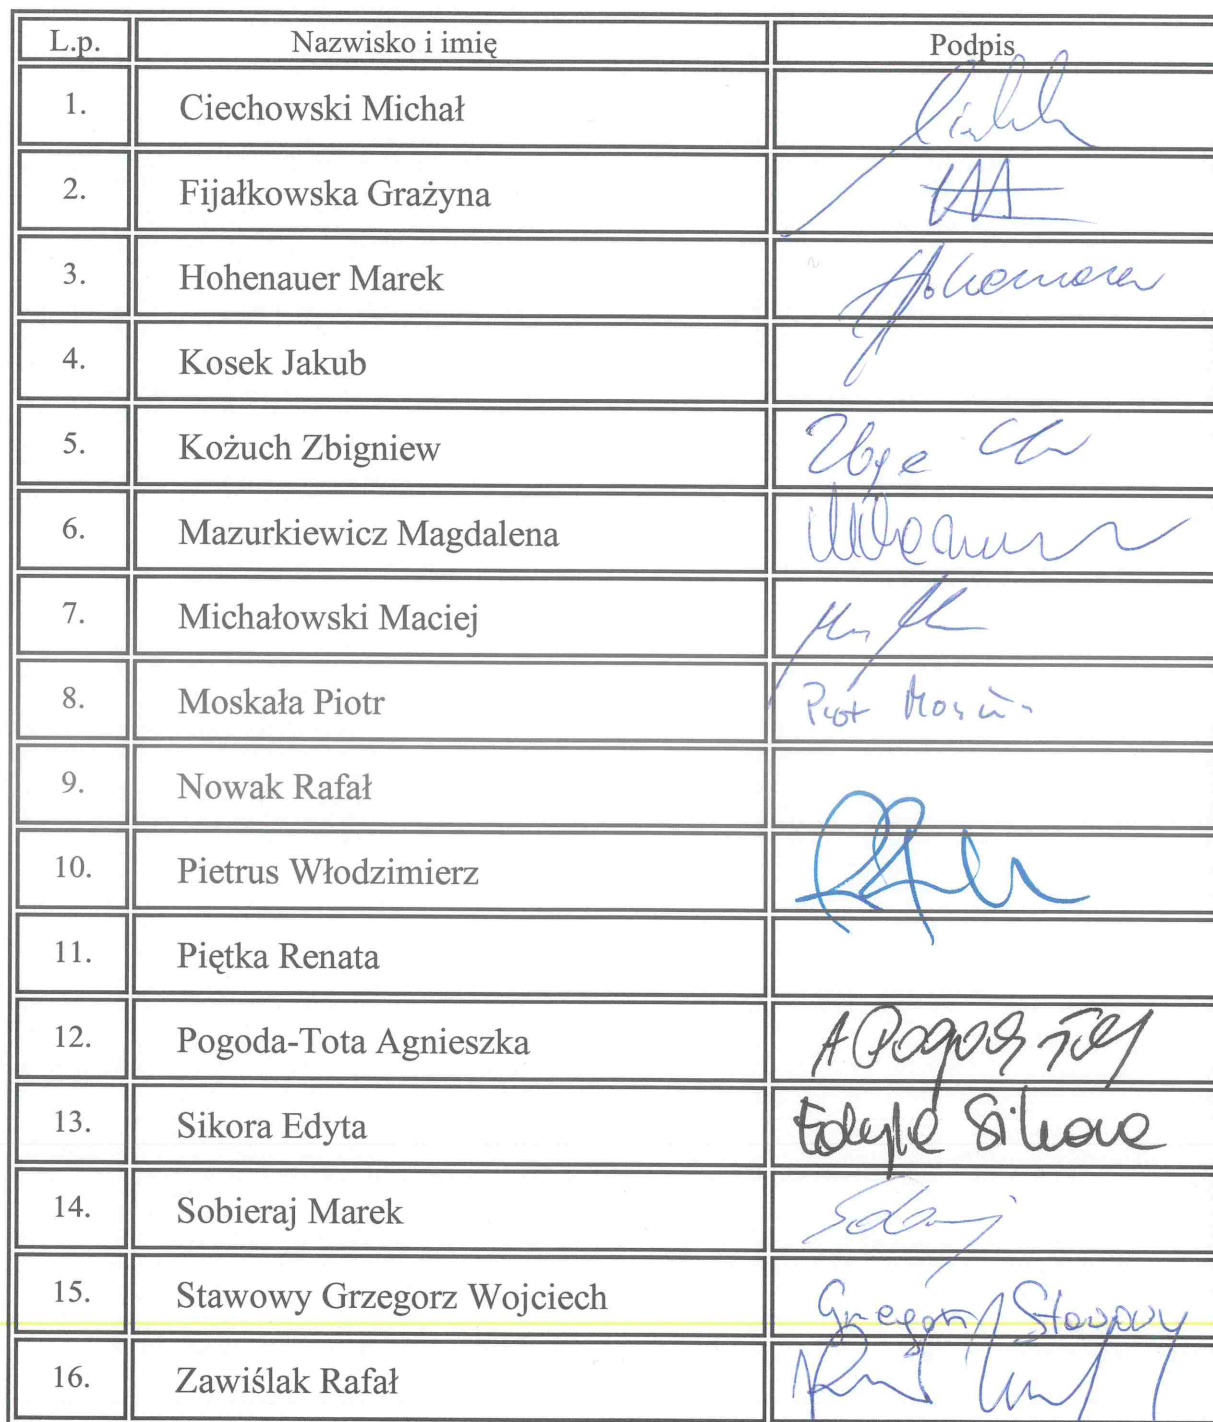 L.p. Nazwisko i imię Podpis
1. Ciechowski Michał
2. Fijałkowska Grażyna
3. Hohenauer Marek
4. Kosek Jakub
5. Kożuch Zbigniew
6. Mazurkiewicz Magdalena
7. Michałowski Maciej
8. Moskała Piotr Piotr
9. Nowak Rafał
10. Pietrus Włodzimierz
11. Piętka Renata
12. Pogoda-Tota Agnieszka A Pogoda Tota
13. Sikora Edyta Edyta Sikora
14. Sobieraj Marek
15. Stawowy Grzegorz Wojciech Grzegorz Stawowy
16. Zawiślak Rafał